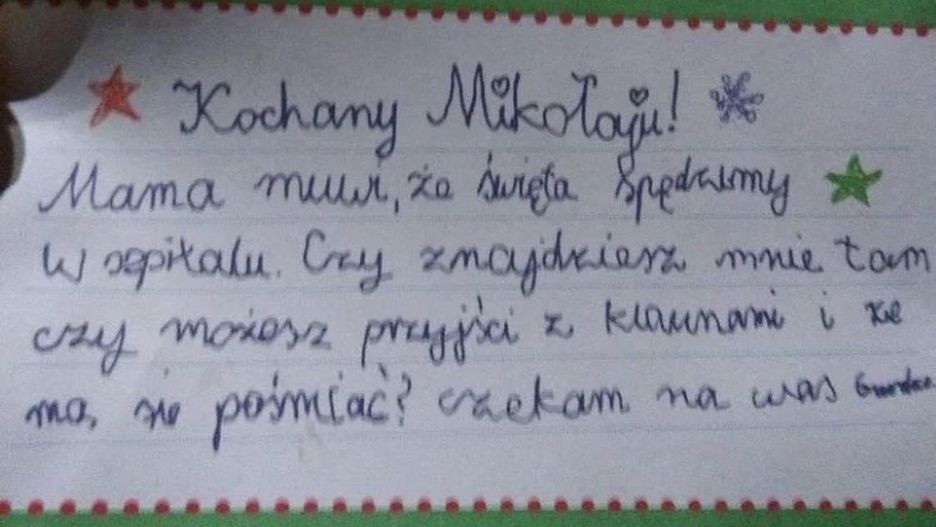 Kochany Mikołaju!
Mama muwi, że święta spędzimy
w szpitalu. Czy znajdziesz mnie tam
czy możesz przyjści z klaunami i ze
mą, sie pośmiać? czekam na was